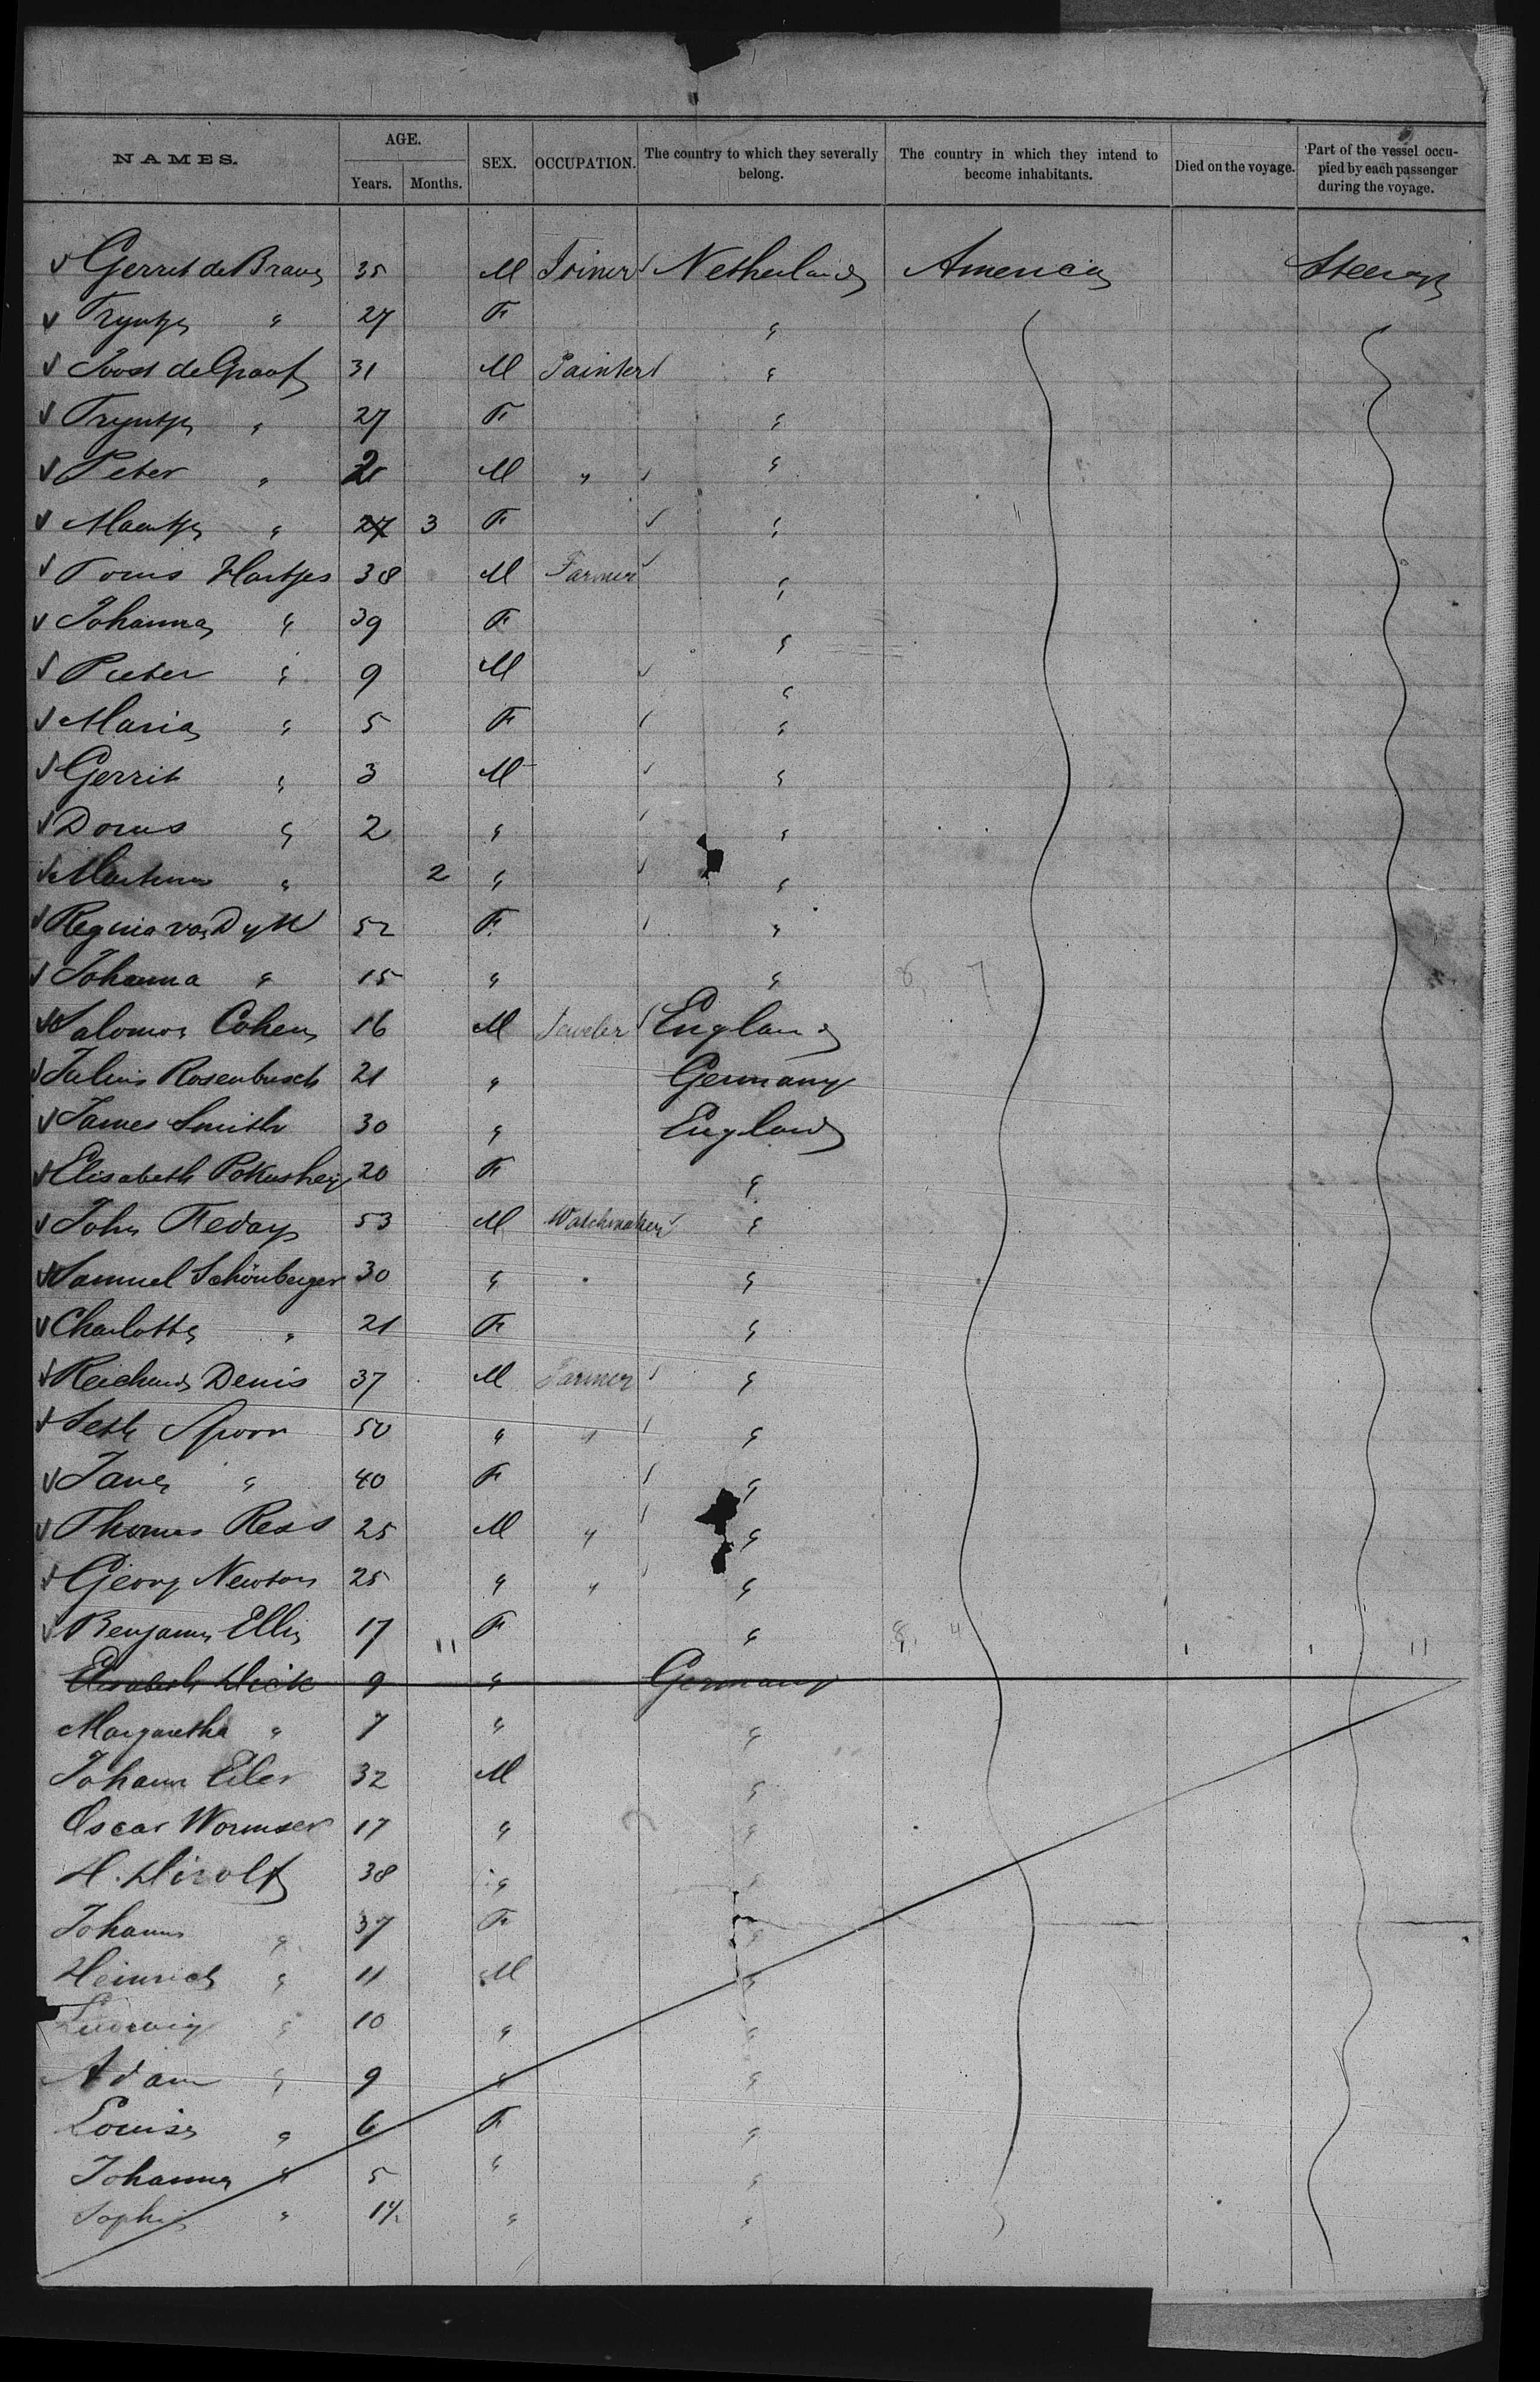 NAMES. AGE. Years. Months. SEX. OCCUPATION. The country to which they severally belong. The country in which they intend to become inhabitants. Died on the voyage. Part of the vessel occupied by each passenger during the voyage.
Gerrit de Braug 35 M Joiner Netherlands America Steerage
Tryntje " 27 F "
Joost de Graaf 31 M Painter "
Tryntje " 27 F "
Peter " 2 M " "
Maartje " 27 3 F "
Hartjes 38 M Farmer "
Johanna " 39 F "
Pieter " 9 M "
Maria " 5 F "
Gerrit " 3 M "
Dorus " 2 " "
Martinus " 2 " "
Regina van Dyk 52 F "
Johanna " 15 " "
Salomon Cohen 16 M Jeweler England
Julius Rosenbusch 21 " Germany
James Smith 30 " England
Elisabeth 20 F "
John Feday 53 M Watchmaker "
Samuel Schönberger 30 " "
Charlotte " 21 F "
Reichard Denis 37 M Farmer "
Seth Spoor 50 " " "
Jane " 40 F "
Thomas Ress 25 M " "
Georg Newton 25 " " "
Benjamin Ellis 17 F "
Elisabeth Dick 9 " Germany
Margaretha " 7 " "
Johann Eiler 32 M "
Oscar Wormser 17 " "
H. 38 " "
Johanna " 37 F "
Heinrich " 11 M "
Ludwig " 10 " "
Adam " 9 " "
Louise " 6 F "
Johanna " 5 " "
Sophie " 1½ " "